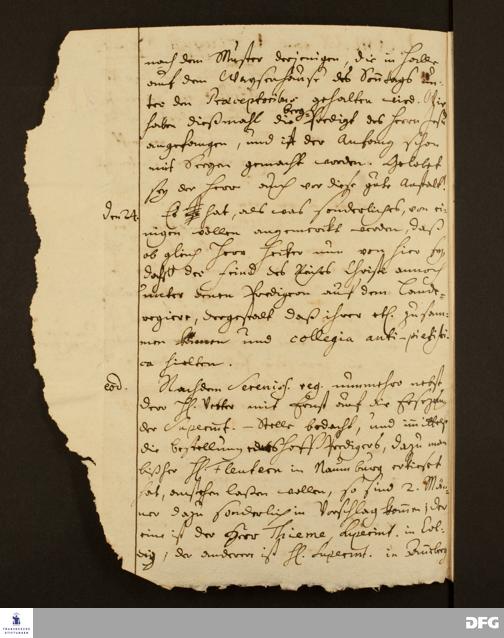 nach dem Muster derjenigen, die in Halle
auf dem Waysenhause des Sontags un-
ter den Praeceptoribus gehalten wird. Wir
haben dießmahl die Berg-Predigt des Herrn Jesu
angefangen, und ist der Anfang schon
mit Seegen gemacht worden. Gelobet
sey der Herr auch vor diese gute Anstalt.
den 24. Es hat, als was sonderliches, von ei-
nigen wollen angemerckt werden, daß
ob gleich Herr nun von hier
daß der Feind des Reichs Christi annoch
unter denen Predigern auf dem Lande
regiere, dergestalt daß ihrer etl. zusam-
men kämen und collegia anti-pietisti-
ca hielten.
eod. Nachdem Sereniss. reg. nunmehro nebst
dero H. Vetter mit Ernst auf die Ersetzung
der Superint.-Stelle bedacht, und
die bestellung des Hoff Predigers, dazu man
bißher H. in Naumburg
hat, anstehen laßen wollen, so sind 2. Män-
ner dazu sonderlich in Vorschlag kommen; der
eine ist der Herr Thieme, Superint. in Col-
diz, der andere ist H. Superint. in
FRANCKESCHE
STIFTUNGEN
DFG